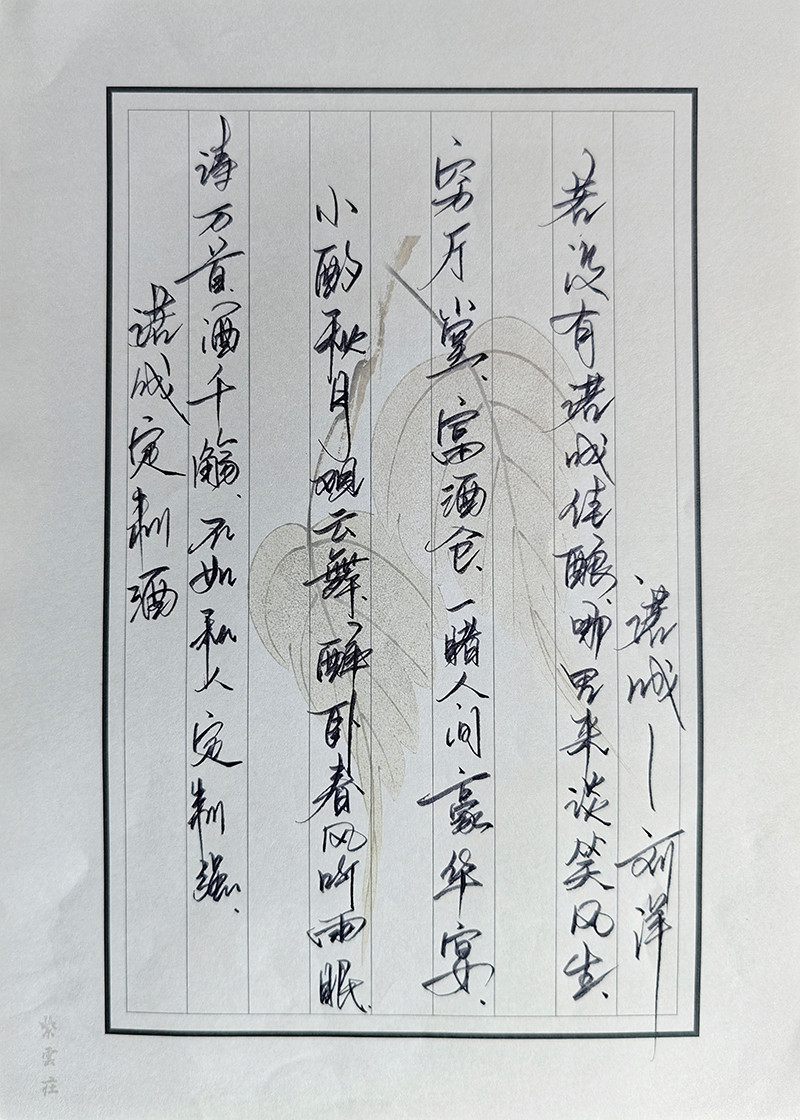 诺成—刘洋
若没有诺成佳酿哪里来谈笑风生、
穷厅堂、富酒仓、一睹人间豪华宴、
小酌秋月观云舞、醉卧春风听雨眠、
诗万首、酒千觞、不如私人定制强、
诺成定制酒
紫雲莊